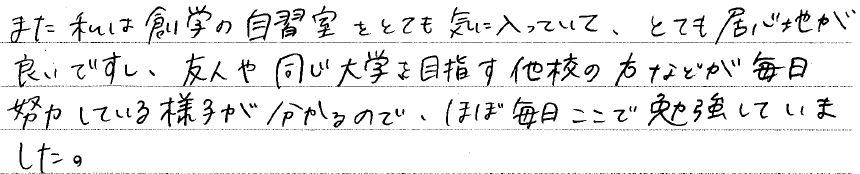 また私は創学の自習室をとても気に入っていて、とても居心地が
良いですし、友人や同じ大学を目指す他校の方などが毎日
努力している様子が分かるので、ほぼ毎日ここで勉強していま
した。